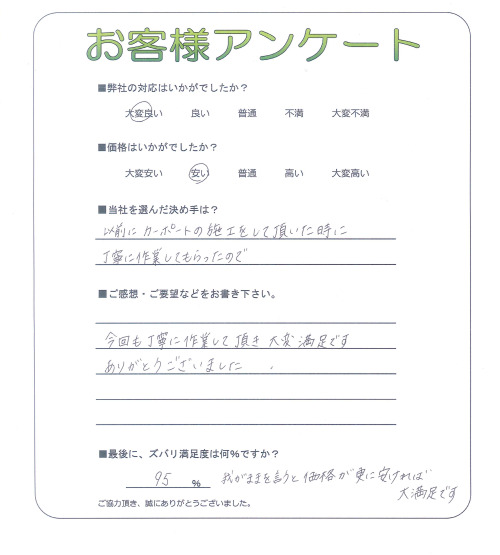 お客様アンケート
■弊社の対応はいかがでしたか？
大変良い 良い 普通 不満 大変不満
■価格はいかがでしたか？
大変安い 安い 普通 高い 大変高い
■当社を選んだ決め手は？
以前にカーポートの施工をして頂いた時に
丁寧に作業してもらったので
■ご感想・ご要望などをお書き下さい。
今回も丁寧に作業して頂き大変満足です
ありがとうございました
■最後に、ズバリ満足度は何%ですか？
95 % 我がままを言うと価格が更に安ければ
大満足です
ご協力頂き、誠にありがとうございました。